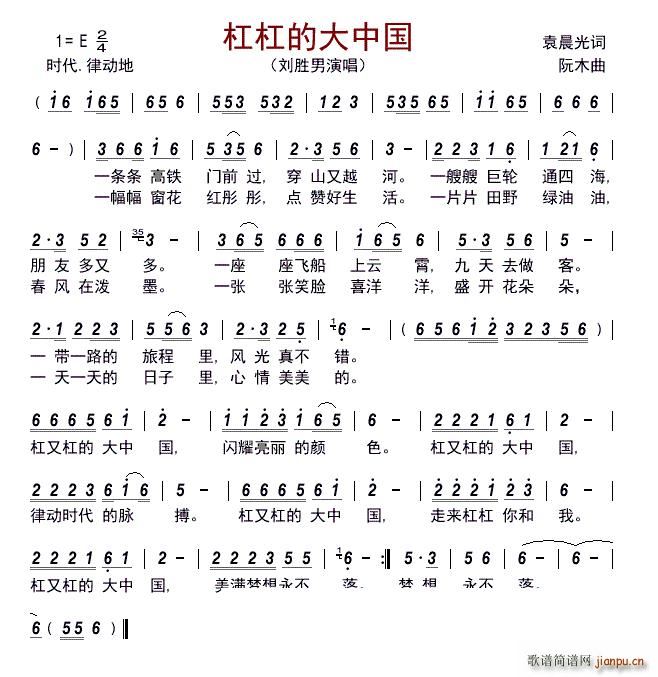 杠杠的大中国
1=E 2/4
袁晨光词
时代.律动地
（刘胜男演唱）
阮木曲
( i6 i65 | 656 | 553 532 | 123 | 535 65 | ii 65 |
6 - ) | 366 i6 | 535 6 | 2·35 6 | 3 - | 223 16 | 245 |
一条条 高铁 门前 过，穿 山又越 河。一艘艘 巨轮 通四 海，
一幅幅 窗花 红彤 彤，点 赞好生 活。一片片 田野 绿油 油，
2·3 52 | 35 3 - | 365 | 666 | i65 | 5·3 23 | 5 - |
朋 友 多又 多。 一座 座飞船 上云 霄，九 天 去做 客。
春 风 在泼 墨。 一张 张笑脸 喜洋 洋，盛 开 花朵 朵，
2·1 223 | 556 | 2·3 25 | 1 6 - | ( 6561 2 | 3235 6 ) |
一 带一路的 旅程 里，风 光 真不 错。
一 天一天的 日子 里，心 情 美美 的。
6665 6i | 2 - | ii23 i65 | 6 - | 2221 61 | 2 - |
杠又杠的 大中 国， 闪耀亮丽 的颜 色。 杠又杠的 大中 国，
2223 6i6 | 5 - | 6665 6i | 2 - | 2221 23 | 6 - |
律动时代 的脉 搏。 杠又杠的 大中 国， 走来杠杠 你和 我。
2221 61 | 2 - | 2223 55 | 1 6 - :| 5·3 | 55 | 6 - | 6 - |
杠又杠的 大中 国， 美满梦想 永不 落。 梦 想 永不 落。
6 ( 55 6 ) ‖
歌谱简谱网
jianpu.cn